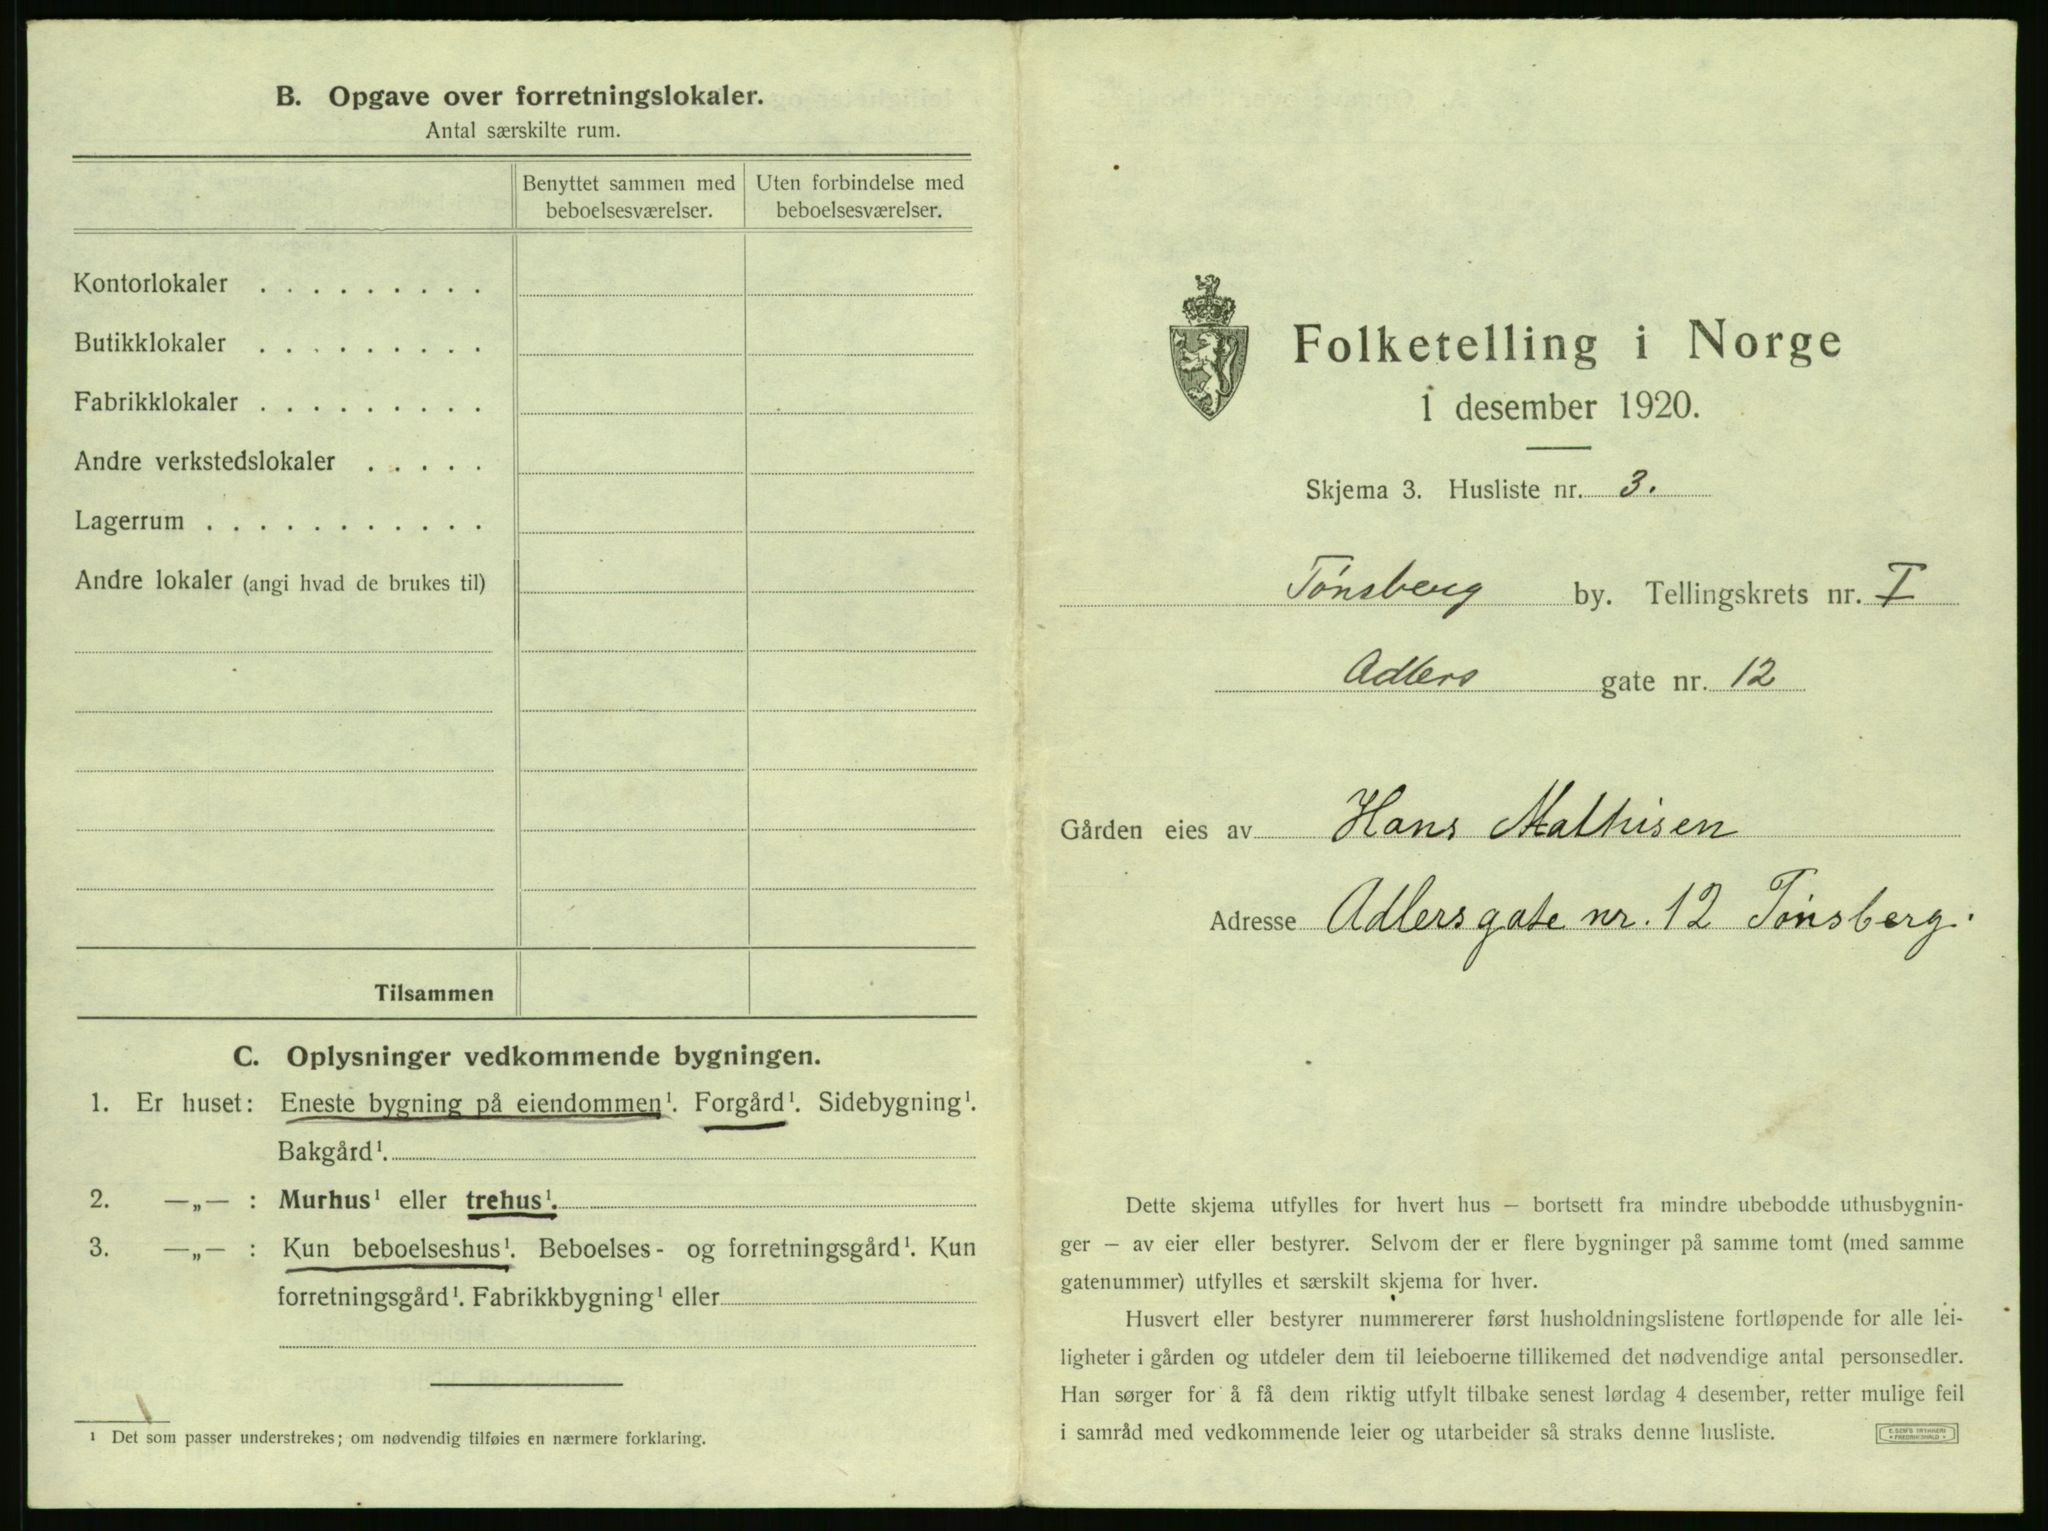 B. Opgave over forretningslokaler.
Antal særskilte rum.
Benyttet sammen med beboelsesværelser.
Uten forbindelse med beboelsesværelser.
Kontorlokaler . . . . . . . . .
Butikklokaler . . . . . . . . .
Fabrikklokaler . . . . . . . . .
Andre verkstedslokaler . . . . .
Lagerrum . . . . . . . . . . .
Andre lokaler (angi hvad de brukes til)
Tilsammen
C. Oplysninger vedkommende bygningen.
1. Er huset: Eneste bygning på eiendommen¹. Forgård¹. Sidebygning¹.
Bakgård¹.
2. —„— : Murhus¹ eller trehus¹.
3. —„— : Kun beboelseshus¹. Beboelses- og forretningsgård¹. Kun
forretningsgård¹. Fabrikkbygning¹ eller
¹ Det som passer understrekes; om nødvendig tilføies en nærmere forklaring.
Folketelling i Norge
1 desember 1920.
Skjema 3. Husliste nr. 3.
Tønsberg by. Tellingskrets nr. I
Adlers gate nr. 12
Gården eies av Hans Mathisen
Adresse Adlersgate nr. 12 Tønsberg.
Dette skjema utfylles for hvert hus — bortsett fra mindre ubebodde uthusbygnin-
ger — av eier eller bestyrer. Selvom der er flere bygninger på samme tomt (med samme
gatenummer) utfylles et særskilt skjema for hver.
Husvert eller bestyrer nummererer først husholdningslistene fortløpende for alle lei-
ligheter i gården og utdeler dem til leieboerne tillikemed det nødvendige antal personsedler.
Han sørger for å få dem riktig utfylt tilbake senest lørdag 4 desember, retter mulige feil
i samråd med vedkommende leier og utarbeider så straks denne husliste.
E. SEM'S TRYKKERI
• FREDRIKSHALD •